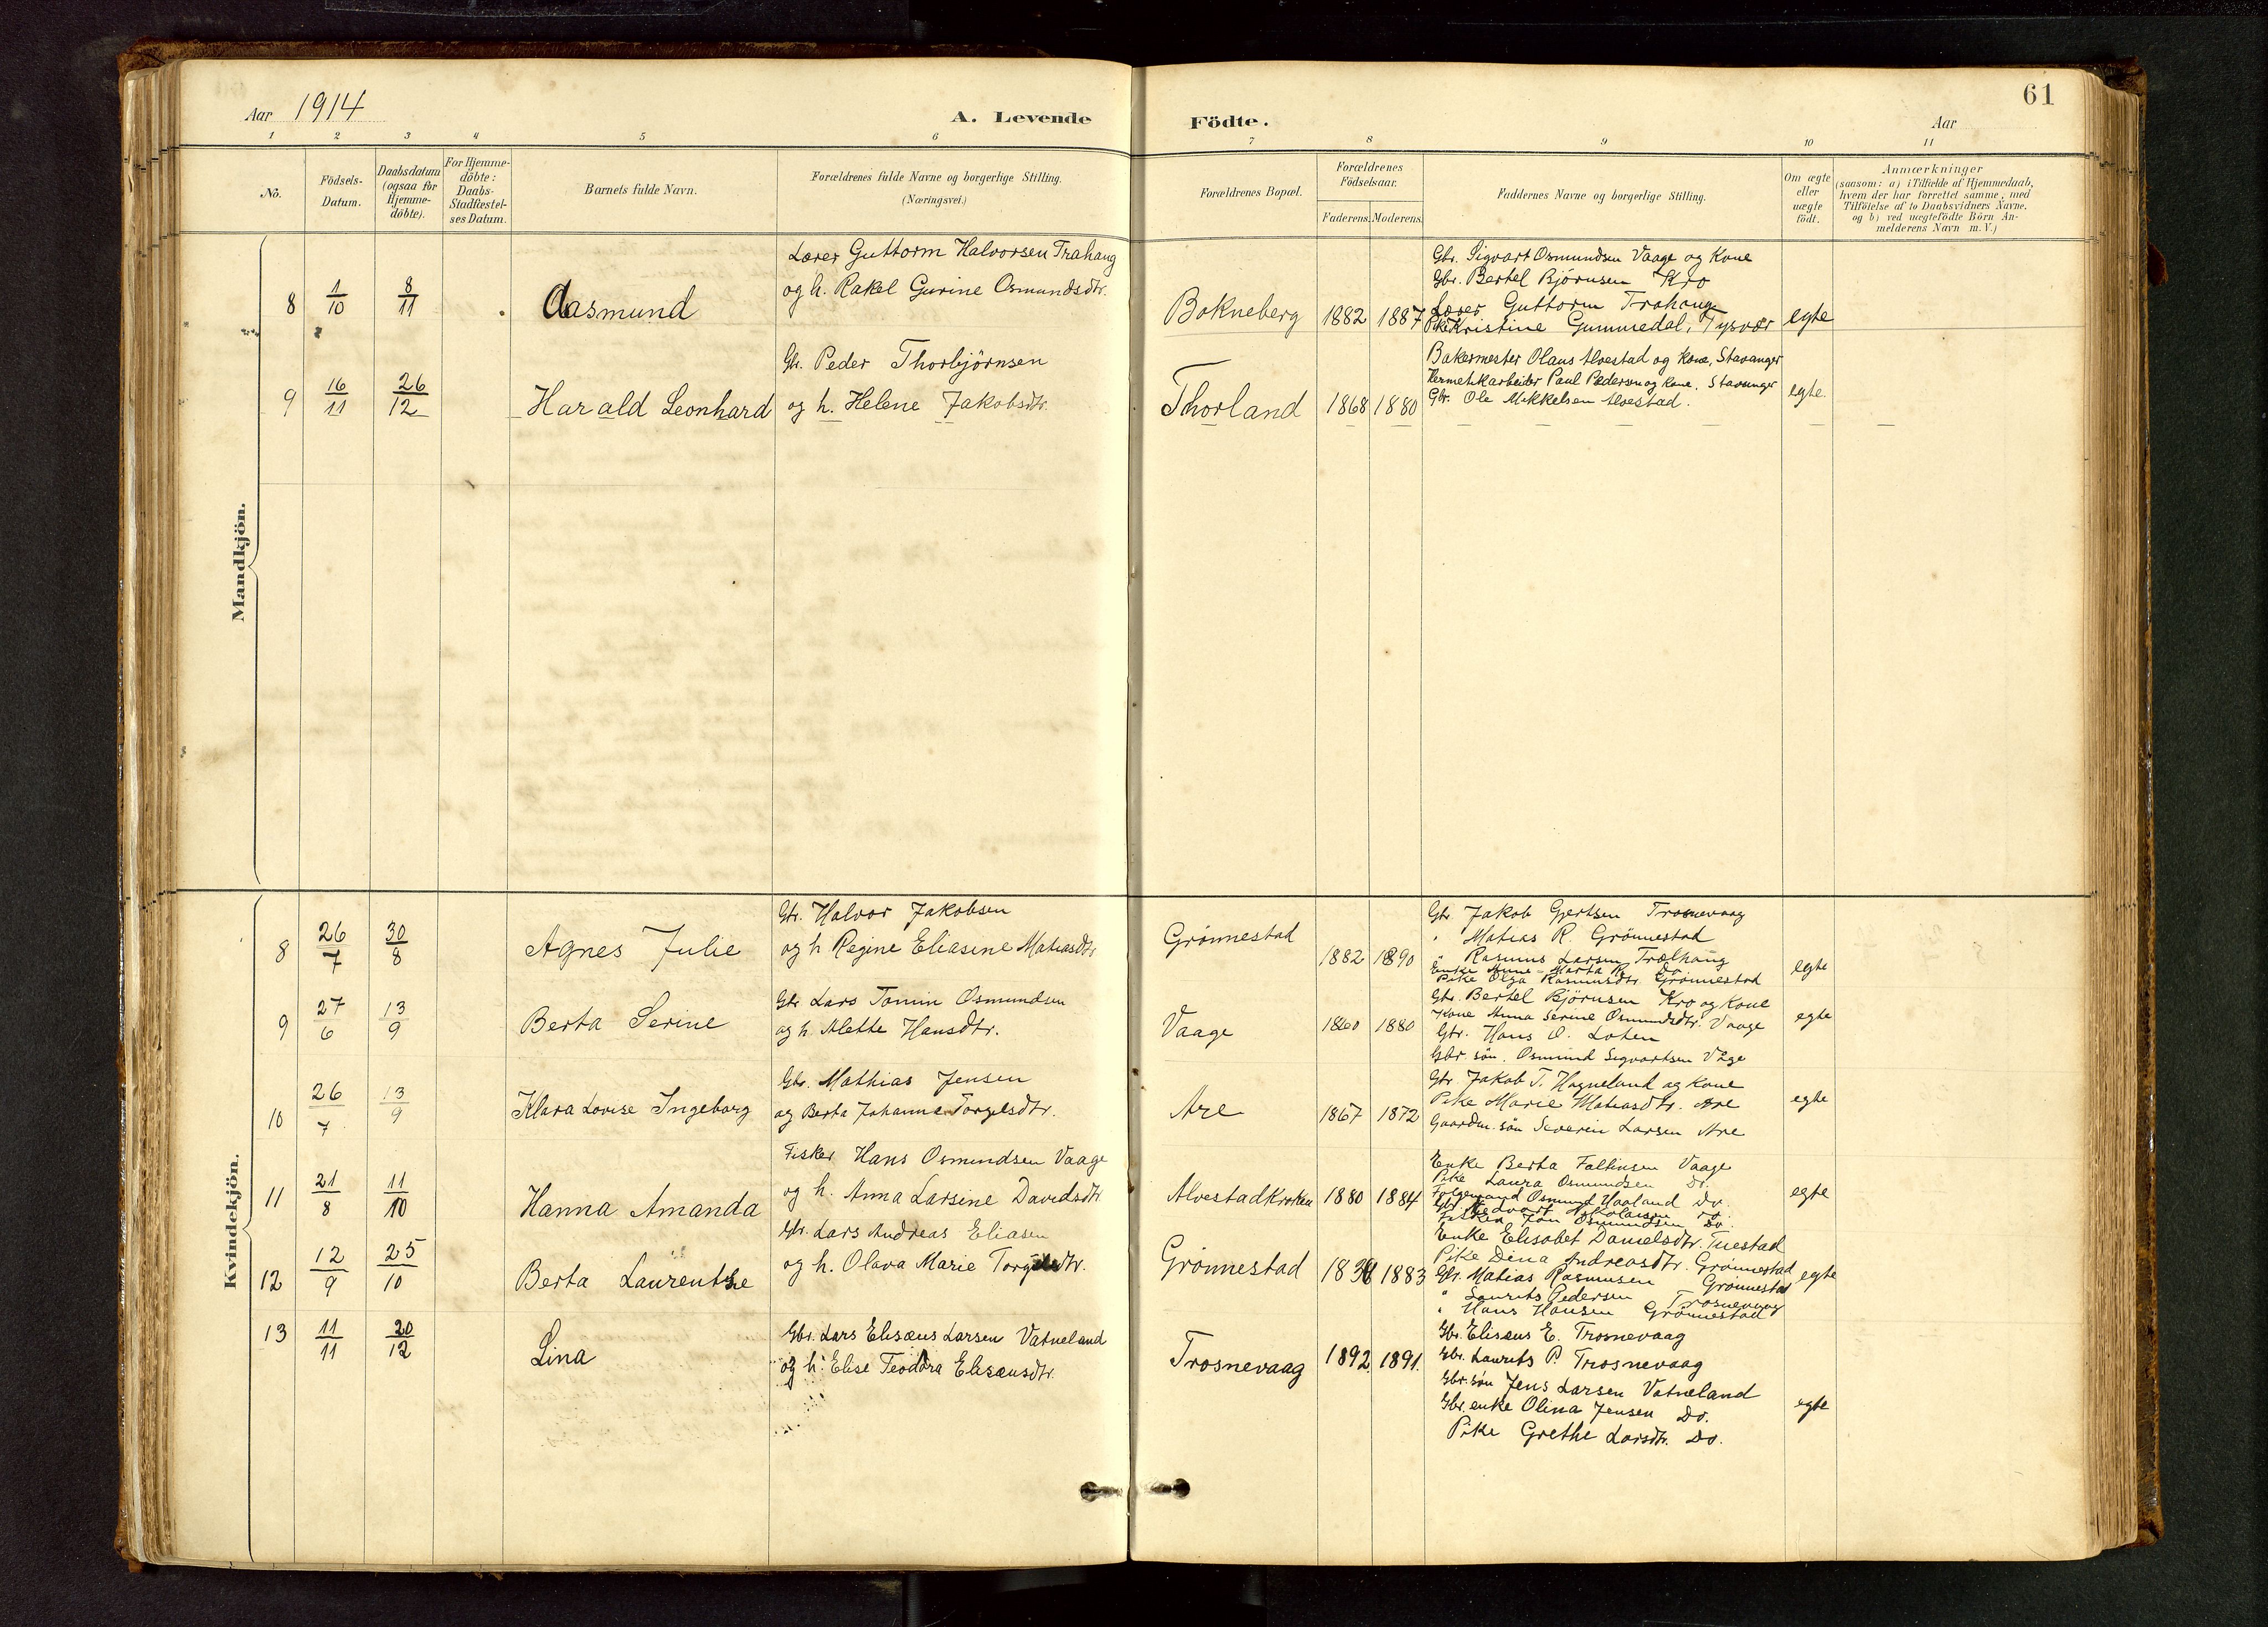 61
Aar 1914
A. Levende Födte.
Aar
1 2 3 4 5 6 7 8 9 10 11
No.
Födsels-Datum.
Daabsdatum (ogsaa for Hjemme-döbte).
For Hjemme-döbte: Daabs-Stadfæstel-ses Datum.
Barnets fulde Navn.
Forældrenes fulde Navne og borgerlige Stilling. (Næringsvei.)
Forældrenes Bopæl.
Forældrenes Födselsaar.
Faderens. Moderens.
Faddernes Navne og borgerlige Stilling.
Om ægte eller uægte födt.
Anmærkninger
(saasom: a) i Tilfælde af Hjemmedaab,
hvem der har forrettet samme, med
Tilföielse af to Daabsvidners Navne.
og b) ved uægtefödte Börn An-
melderens Navn m. V.)
Mandkjön.
8 1/10 8/11 Aasmund
Lærer Guttorm Halvorsen Trahaug
og h. Rakel Gurine Osmundsdtr.
Bokneberg 1882 1887
Gbr. Sigvart Osmundsen Vaage og Kone
Gbr. Bertel Björnsen Kro
Lærer Guttorm Trahaug
Pike Kristine Gummedal, Tysvær
egte
9 16/11 26/12 Harald Leonhard
Gbr. Peder Thorbjörnsen
og h. Helene Jakobsdtr.
Thorland 1868 1880
Bakermester Olaus Alvestad og Kone, Stavanger
Hermetikarbeider Paul Pedersen og Kone, Stavanger
Gbr. Ole Mikkelsen Alvestad.
egte.
Kvindekjön.
8 26/7 30/8 Agnes Julie
Gbr. Halvor Jakobsen
og h Regine Eliasine Matiasdtr
Grönnestad 1882 1890
Gbr. Jakob Gjertsen Trosnevaag
" Matias R. Grönnestad
" Rasmus Larsen Trælhaug
Enke Anne Marta R. Do
Pike Olga Rasmusdtr. Grönnestad
egte
9 27/6 13/9 Berta Serine
Gbr Lars Tomin Osmundsen
og h. Alette Hansdtr.
Vaage 1860 1880
Gbr. Bertel Björnsen Kro og Kone
Kone Anna Serine Osmundsdtr. Vaage
Gbr. Hans O. Loten
Gbr. sön. Osmund Sigvartsen Våge
egte
10 26/7 13/9 Klara Lovise Ingeborg
Gbr. Mathias Jensen
og Berta Johanne Torgelsdtr.
Are 1867 1872
Gbr. Jakob T. Hogneland og Kone
Pike Marie Matiasdtr. Are
Gaardm. sön Severin Larsen Are
egte
11 21/8 11/10 Hanna Amanda
Fisker Hans Osmundsen Vaage
og h. Anna Larsine Davidsdtr
Alvestadkroken 1880 1884
Enke Berta Faltinsen Vaage
Pike Laura Osmundsen Do.
Folgemand Osmund Haaland Do.
Fisker Jon Osmundsen Do.
egte
12 12/9 25/10 Berta Laurentse
Gbr. Lars Andreas Eliasen
og h. Olava Marie
Grönnestad 1883
Enke Elisabet Danielsdtr. Tuestad
Pike Dina Andreasdtr. Grönnestad
Gbr. Matias Rasmusen Grönnestad
" Laurits Pedersen Trosnevaag
" Hans Hansen Grönnestad
egte
13 11/11 20/12 Lina
Gbr. Lars Elisæus Larsen Vatneland
og h. Elise Teodora Elisæusdtr.
Trosnevaag 1892. 1891.
Gbr. Elisæus E. Trosnevaag
Gbr. Laurits P. Trosnevaag
Gbr. sön Jens Larsen Vatneland
Gbr. enke Olina Jensen Do.
Pike Grethe Larsdtr. Do.
egte